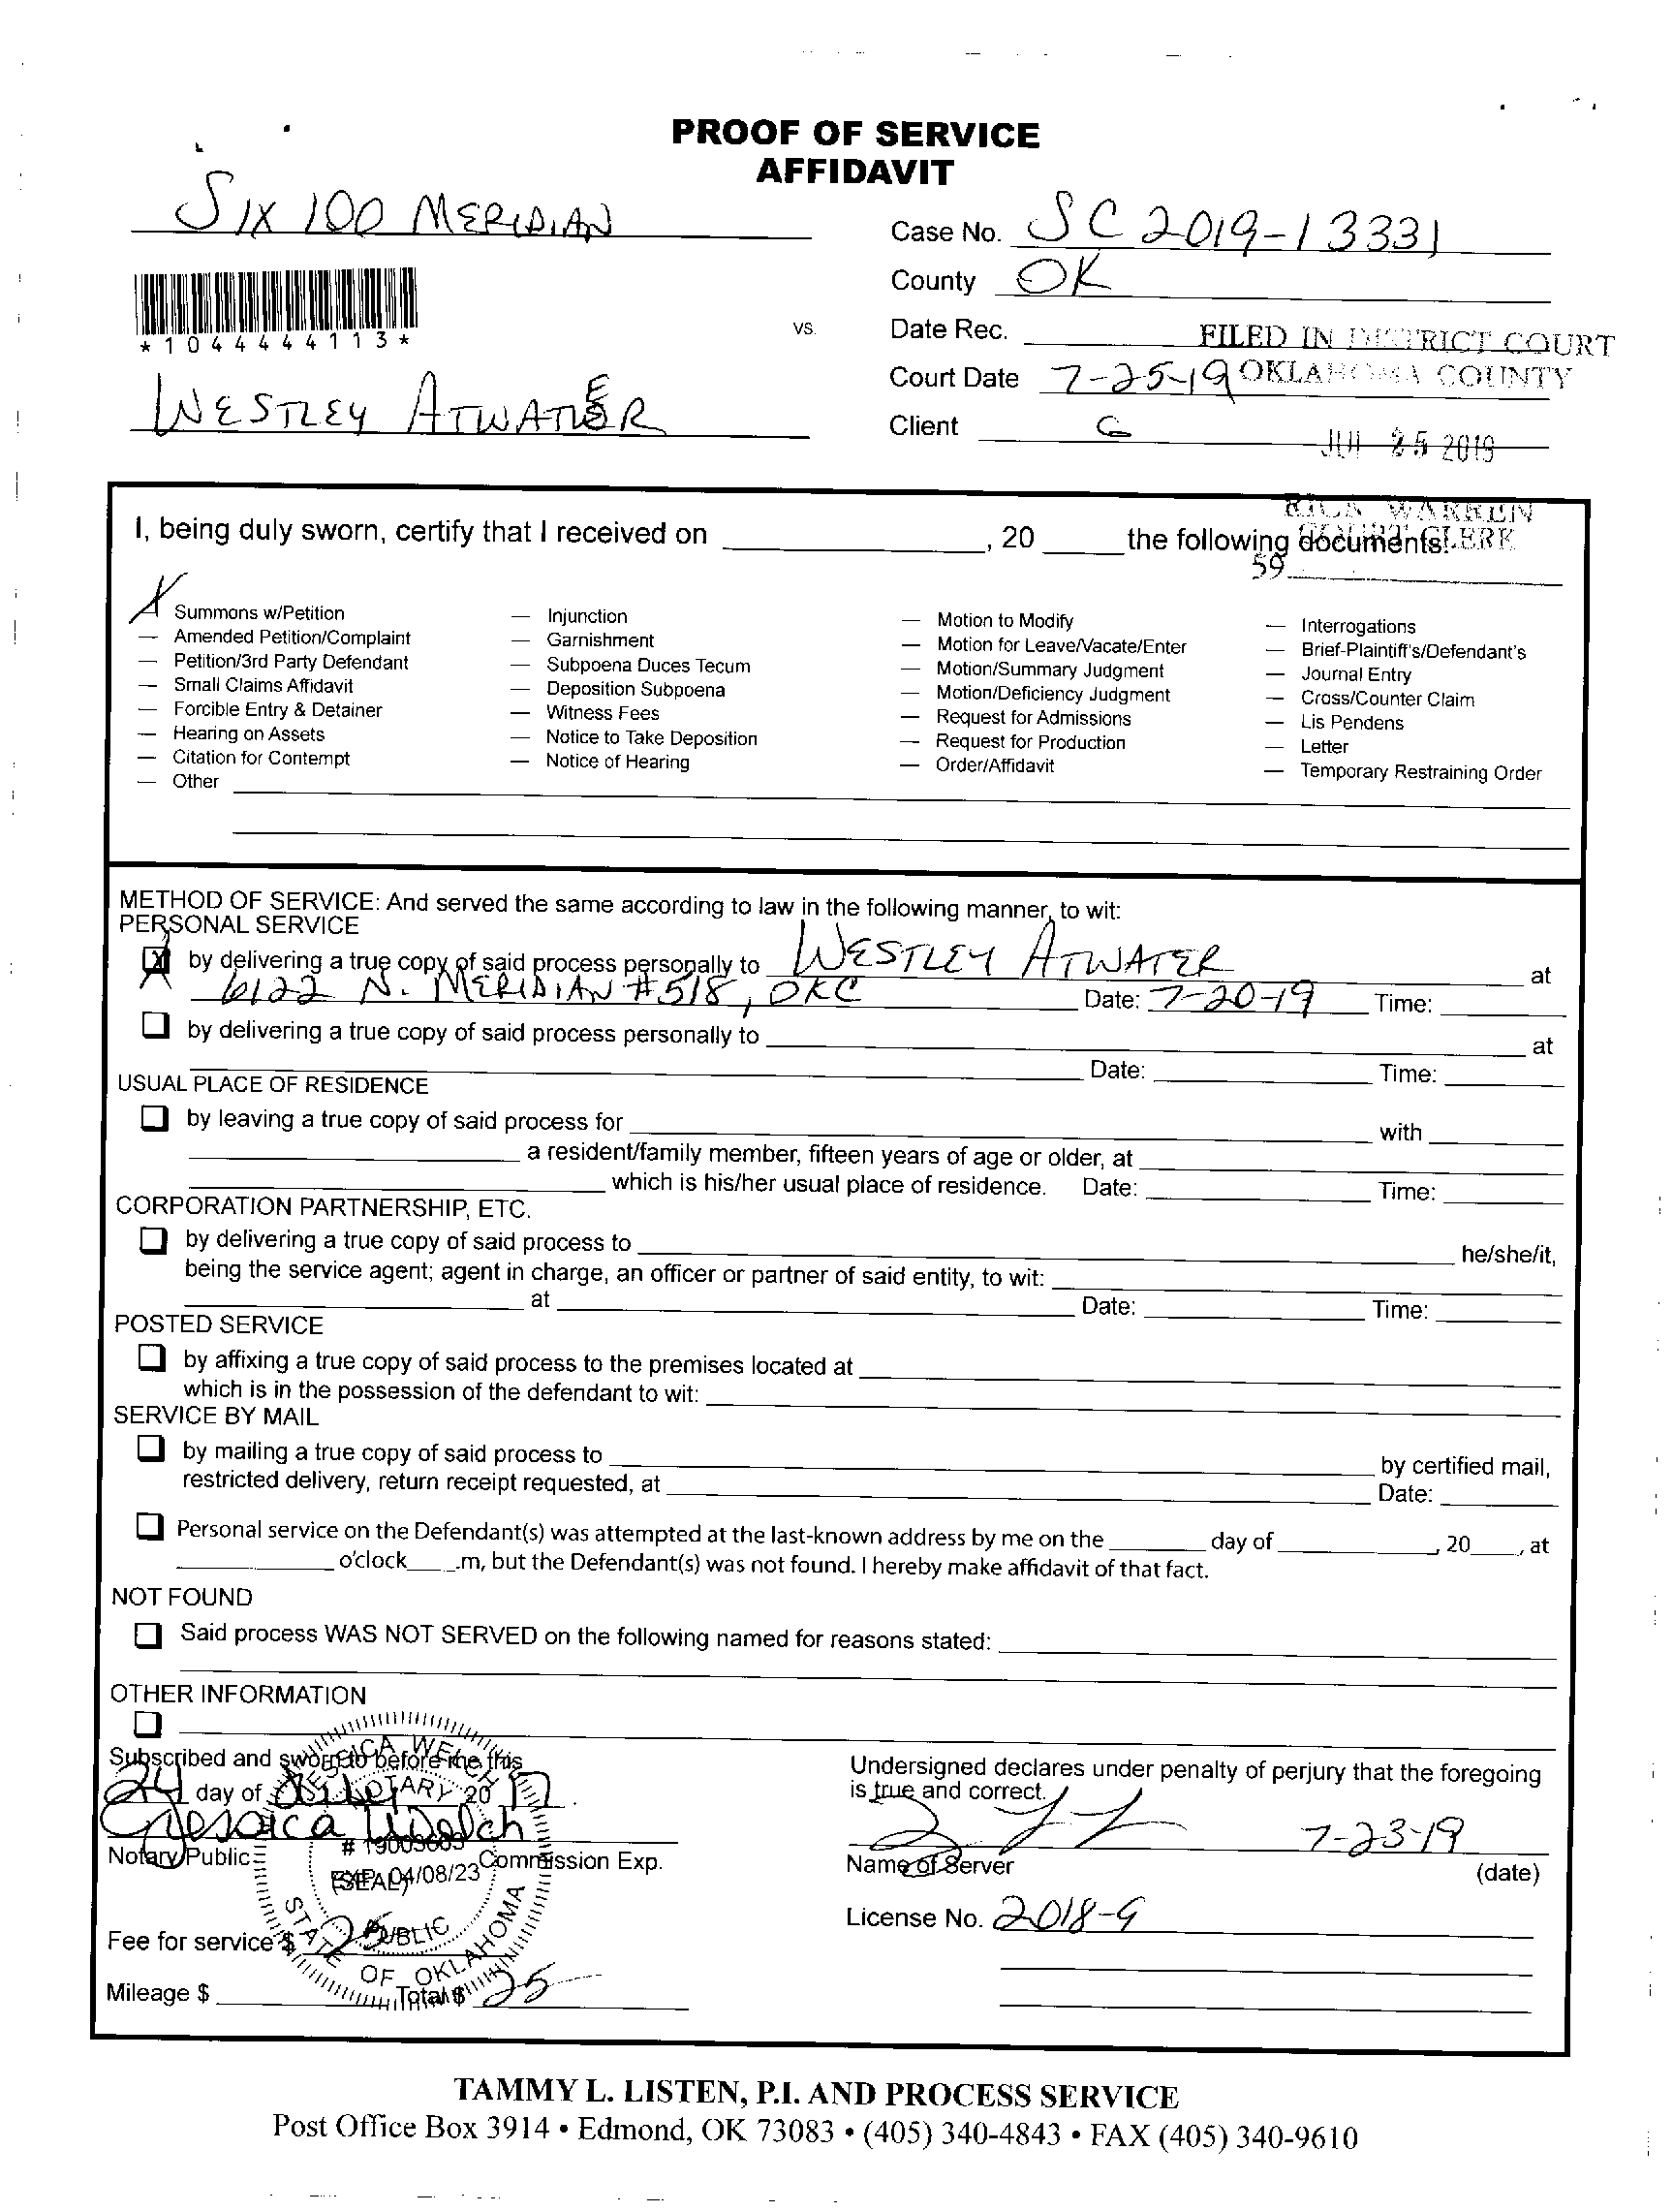 PROOF OF SERVICE
AFFIDAVIT
SIX 100 MERIDIAN
Case No. SC 2019-13331
County OK
*1044444113*
vs.
Date Rec.
FILED IN DISTRICT COURT
Court Date 7-25-19
OKLAHOMA COUNTY
WESTLEY ATWATER
Client G
JUL 25 2019
RICK WARREN
COURT CLERK
I, being duly sworn, certify that I received on ____, 20 ____ the following documents:
59
X Summons w/Petition
— Amended Petition/Complaint
— Petition/3rd Party Defendant
— Small Claims Affidavit
— Forcible Entry & Detainer
— Hearing on Assets
— Citation for Contempt
— Other
— Injunction
— Garnishment
— Subpoena Duces Tecum
— Deposition Subpoena
— Witness Fees
— Notice to Take Deposition
— Notice of Hearing
— Motion to Modify
— Motion for Leave/Vacate/Enter
— Motion/Summary Judgment
— Motion/Deficiency Judgment
— Request for Admissions
— Request for Production
— Order/Affidavit
— Interrogations
— Brief-Plaintiff's/Defendant's
— Journal Entry
— Cross/Counter Claim
— Lis Pendens
— Letter
— Temporary Restraining Order
METHOD OF SERVICE: And served the same according to law in the following manner, to wit:
PERSONAL SERVICE
X by delivering a true copy of said process personally to WESTLEY ATWATER at
6122 N. MERIDIAN #518, OKC Date: 7-20-19 Time:
by delivering a true copy of said process personally to ____ at
Date: ____ Time:
USUAL PLACE OF RESIDENCE
by leaving a true copy of said process for ____ with
a resident/family member, fifteen years of age or older, at
which is his/her usual place of residence. Date: ____ Time:
CORPORATION PARTNERSHIP, ETC.
by delivering a true copy of said process to ____ he/she/it,
being the service agent; agent in charge, an officer or partner of said entity, to wit:
at ____ Date: ____ Time:
POSTED SERVICE
by affixing a true copy of said process to the premises located at
which is in the possession of the defendant to wit:
SERVICE BY MAIL
by mailing a true copy of said process to ____ by certified mail,
restricted delivery, return receipt requested, at ____ Date:
Personal service on the Defendant(s) was attempted at the last-known address by me on the ____ day of ____, 20 ____, at
____ o'clock ____.m, but the Defendant(s) was not found. I hereby make affidavit of that fact.
NOT FOUND
Said process WAS NOT SERVED on the following named for reasons stated:
OTHER INFORMATION
Subscribed and sworn to before me this
24 day of July 20 19
Jessica Welch
Notary Public
(SEAL)
Commission Exp.
JESSICA WELCH
NOTARY
PUBLIC
EXP. 04/08/23
STATE OF OKLAHOMA
Fee for service $ 25
Mileage $ ____ Total $ 25
Undersigned declares under penalty of perjury that the foregoing
is true and correct.
7-23-19
Name of Server
(date)
License No. 2018-9
TAMMY L. LISTEN, P.I. AND PROCESS SERVICE
Post Office Box 3914 • Edmond, OK 73083 • (405) 340-4843 • FAX (405) 340-9610